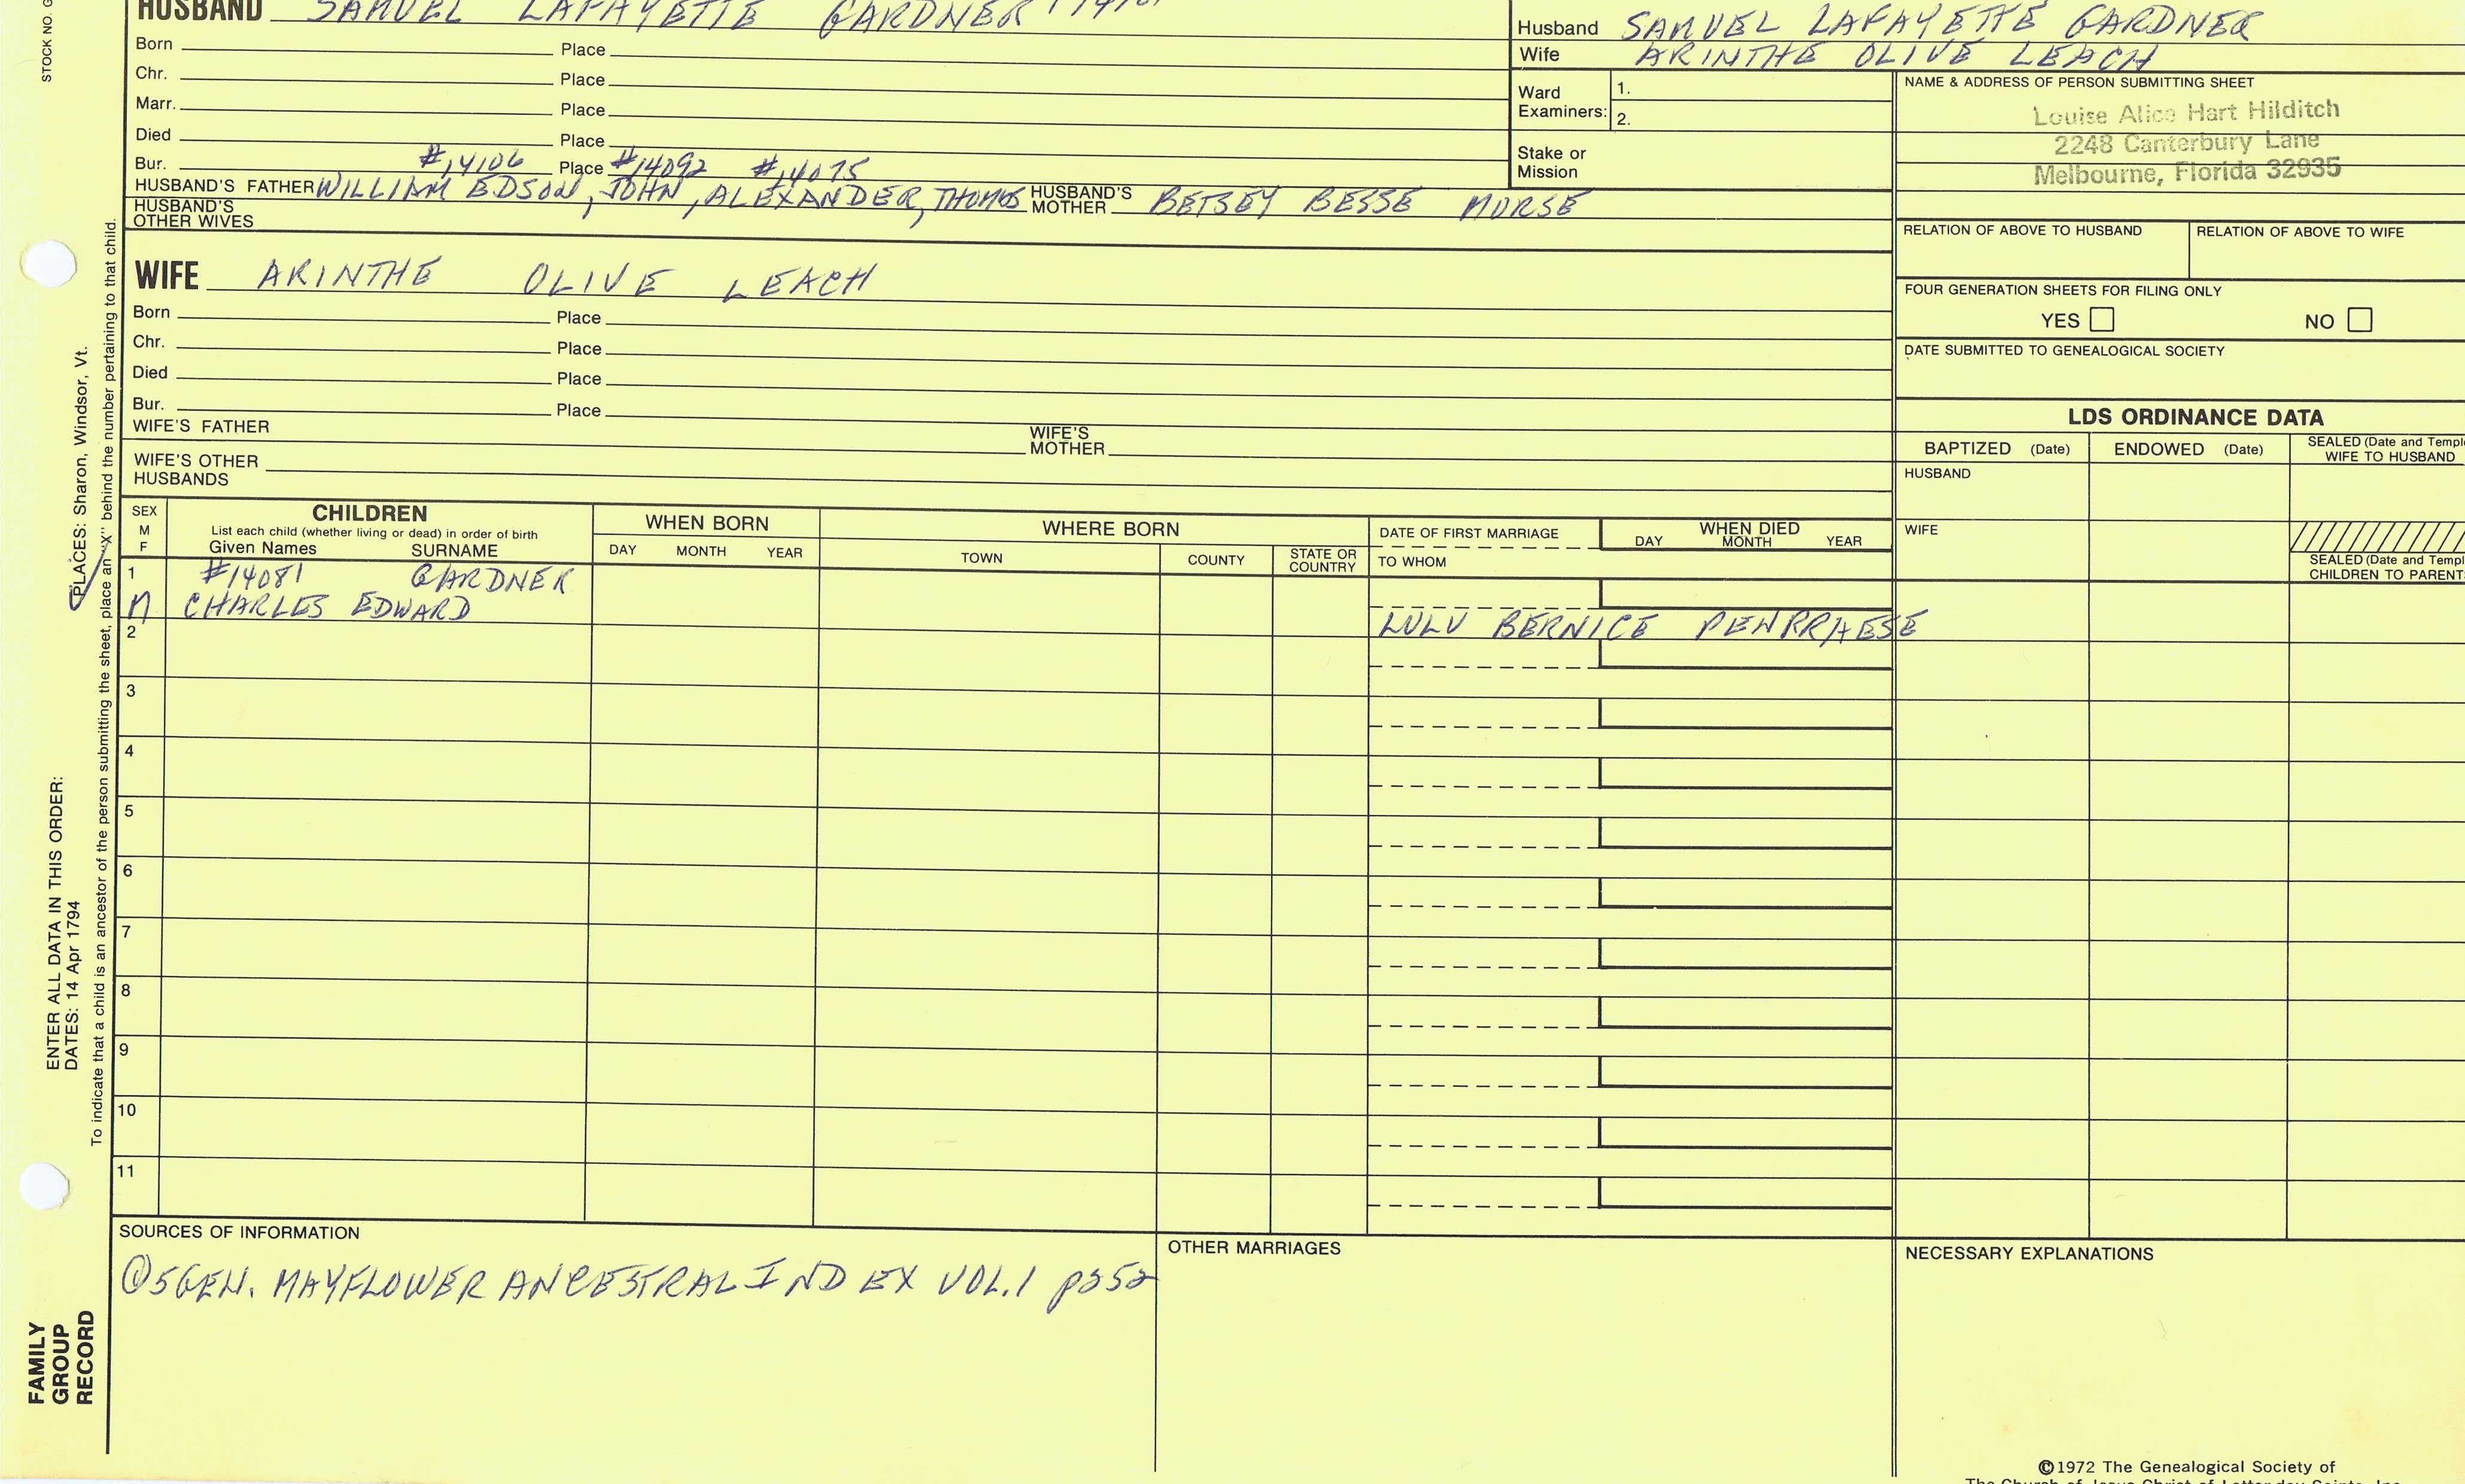 STOCK NO. G
HUSBAND SAMUEL LAFAYETTE GARDNER
Born Place
Chr. Place
Marr. Place
Died Place
Bur. #14106 Place #14092 #14075
HUSBAND'S FATHER WILLIAM EDSON, JOHN, ALEXANDER, THOMAS HUSBAND'S MOTHER BETSEY BESSE MORSE
HUSBAND'S OTHER WIVES
WIFE ARINTHE OLIVE LEACH
Born Place
Chr. Place
Died Place
Bur. Place
WIFE'S FATHER WIFE'S MOTHER
WIFE'S OTHER HUSBANDS
Husband SAMUEL LAFAYETTE GARDNER
Wife ARINTHE OLIVE LEACH
Ward Examiners: 1.
2.
Stake or Mission
NAME & ADDRESS OF PERSON SUBMITTING SHEET
Louise Alice Hart Hilditch
2248 Canterbury Lane
Melbourne, Florida 32935
RELATION OF ABOVE TO HUSBAND RELATION OF ABOVE TO WIFE
FOUR GENERATION SHEETS FOR FILING ONLY
YES NO
DATE SUBMITTED TO GENEALOGICAL SOCIETY
LDS ORDINANCE DATA
BAPTIZED (Date) ENDOWED (Date) SEALED (Date and Templ
WIFE TO HUSBAND
HUSBAND
WIFE
SEALED (Date and Templ
CHILDREN TO PARENT
SEX M F
CHILDREN
List each child (whether living or dead) in order of birth
Given Names SURNAME
WHEN BORN
DAY MONTH YEAR
WHERE BORN
TOWN COUNTY STATE OR COUNTRY
DATE OF FIRST MARRIAGE
TO WHOM
WHEN DIED
DAY MONTH YEAR
1 #14081 GARDNER
M CHARLES EDWARD
LULU BERNICE
2
3
4
5
6
7
8
9
10
11
SOURCES OF INFORMATION
① 5 GEN. MAYFLOWER ANCESTRAL INDEX VOL.1 p252
OTHER MARRIAGES
NECESSARY EXPLANATIONS
ENTER ALL DATA IN THIS ORDER:
DATES: 14 Apr 1794
PLACES: Sharon, Windsor, Vt.
To indicate that a child is an ancestor of the person submitting the sheet, place an "X" behind the number pertaining to that child.
FAMILY
GROUP
RECORD
©1972 The Genealogical Society of